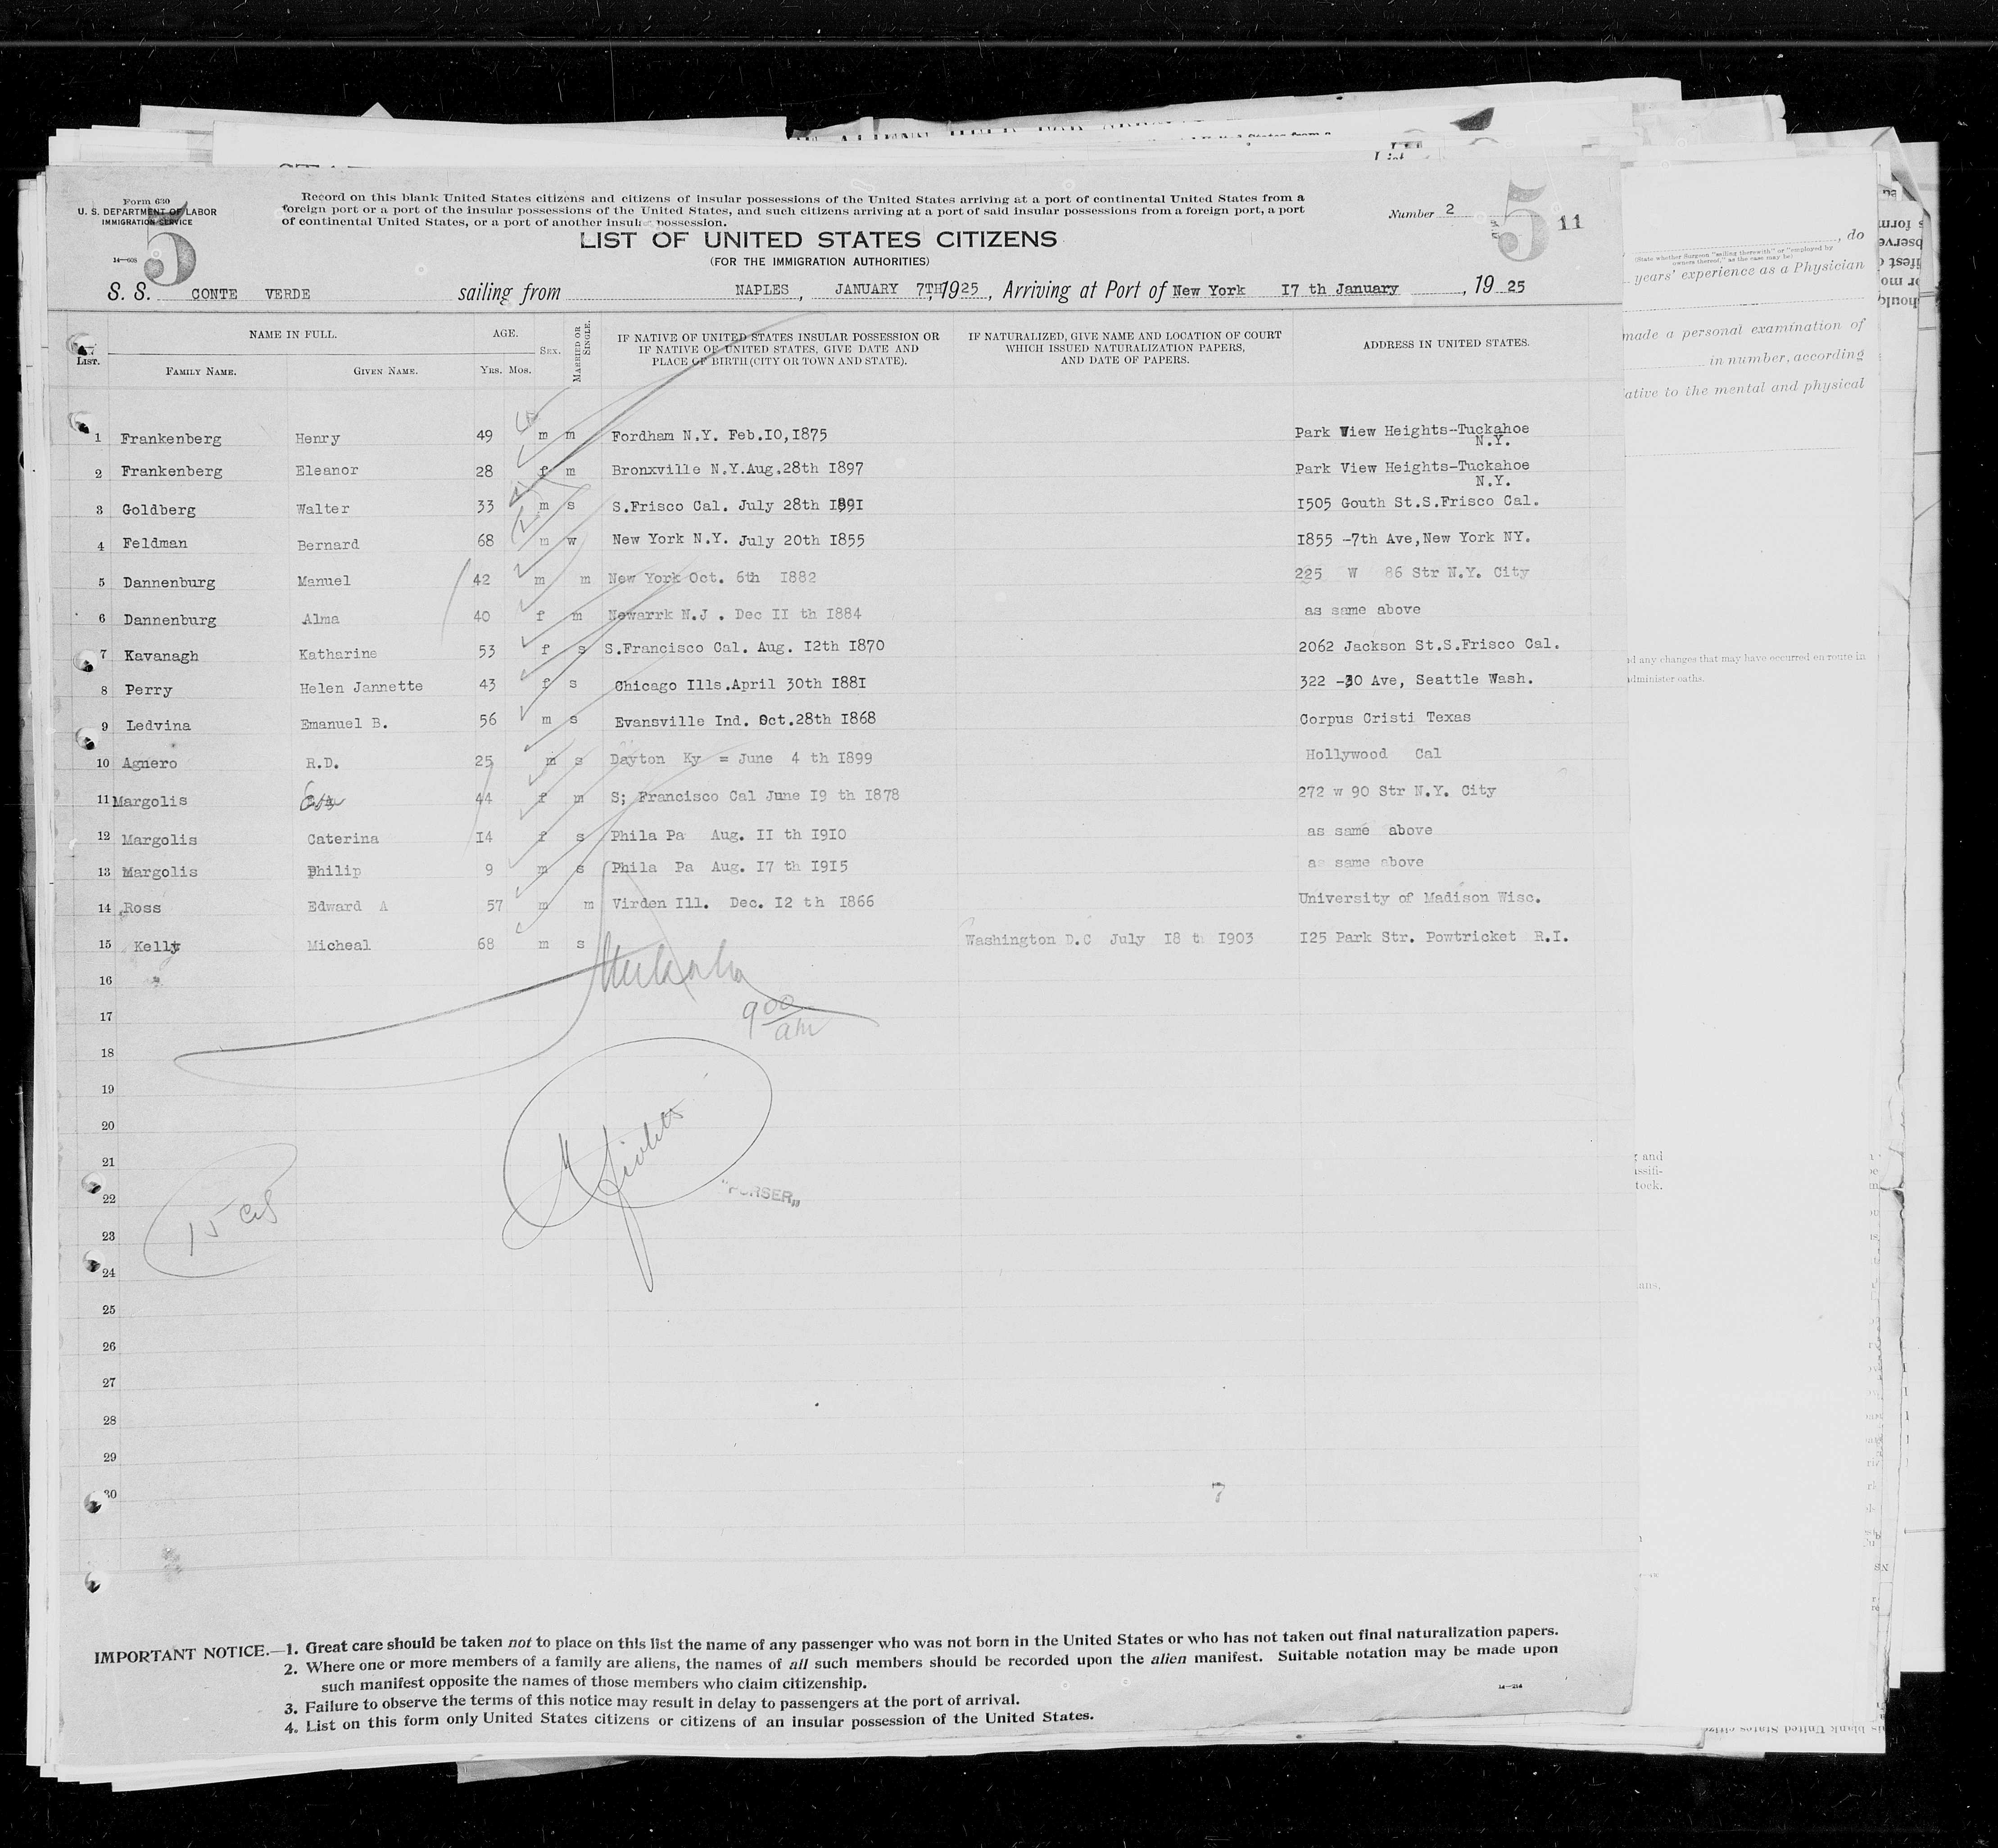 Form 630
U. S. DEPARTMENT OF LABOR
IMMIGRATION SERVICE
14—608
5
Record on this blank United States citizens and citizens of insular possessions of the United States arriving at a port of continental United States from a
foreign port or a port of the insular possessions of the United States, and such citizens arriving at a port of said insular possessions from a foreign port, a port
of continental United States, or a port of another insular possession.
Number 2
5
11
LIST OF UNITED STATES CITIZENS
(FOR THE IMMIGRATION AUTHORITIES)
S. S. CONTE VERDE sailing from NAPLES, JANUARY 7TH, 1925, Arriving at Port of New York 17 th January, 19 25
LIST. NAME IN FULL. FAMILY NAME. GIVEN NAME. AGE. YRS. MOS. SEX. MARRIED OR SINGLE. IF NATIVE OF UNITED STATES INSULAR POSSESSION OR IF NATIVE OF UNITED STATES, GIVE DATE AND PLACE OF BIRTH (CITY OR TOWN AND STATE). IF NATURALIZED, GIVE NAME AND LOCATION OF COURT WHICH ISSUED NATURALIZATION PAPERS, AND DATE OF PAPERS. ADDRESS IN UNITED STATES.
1 Frankenberg Henry 49 m m Fordham N.Y. Feb.10,1875 Park View Heights-Tuckahoe N.Y.
2 Frankenberg Eleanor 28 f m Bronxville N.Y.Aug.28th 1897 Park View Heights-Tuckahoe N.Y.
3 Goldberg Walter 33 m s S.Frisco Cal. July 28th 1891 1505 Gouth St.S.Frisco Cal.
4 Feldman Bernard 68 m w New York N.Y. July 20th 1855 1855 -7th Ave,New York NY.
5 Dannenburg Manuel 42 m m New York Oct. 6th 1882 225 W 86 Str N.Y. City
6 Dannenburg Alma 40 f m Newarrk N.J . Dec 11 th 1884 as same above
7 Kavanagh Katharine 53 f s S.Francisco Cal. Aug. 12th 1870 2062 Jackson St.S.Frisco Cal.
8 Perry Helen Jannette 43 f s Chicago Ills.April 30th 1881 322 -30 Ave, Seattle Wash.
9 Ledvina Emanuel B. 56 m s Evansville Ind. Oct.28th 1868 Corpus Cristi Texas
10 Agnero R.D. 25 m s Dayton Ky = June 4 th 1899 Hollywood Cal
11 Margolis 44 f m S; Francisco Cal June 19 th 1878 272 w 90 Str N.Y. City
12 Margolis Caterina 14 f s Phila Pa Aug. 11 th 1910 as same above
13 Margolis Philip 9 m s Phila Pa Aug. 17 th 1915 as same above
14 Ross Edward A 57 m m Virden Ill. Dec. 12 th 1866 University of Madison Wisc.
15 Kelly Micheal 68 m s Washington D.C July 18 th 1903 125 Park Str. Powtricket R.I.
16
9 00 am
17
18
19
20
21
22
"PURSER„
15 cts
23
24
25
26
27
28
29
30
7
IMPORTANT NOTICE.—1. Great care should be taken not to place on this list the name of any passenger who was not born in the United States or who has not taken out final naturalization papers.
2. Where one or more members of a family are aliens, the names of all such members should be recorded upon the alien manifest. Suitable notation may be made upon
such manifest opposite the names of those members who claim citizenship.
3. Failure to observe the terms of this notice may result in delay to passengers at the port of arrival.
4. List on this form only United States citizens or citizens of an insular possession of the United States.
14—214
, do
(State whether Surgeon "sailing therewith" or "employed by
owners thereof," as the case may be)
years' experience as a Physician
made a personal examination of
in number, according
ative to the mental and physical
d any changes that may have occurred en route in
administer oaths.